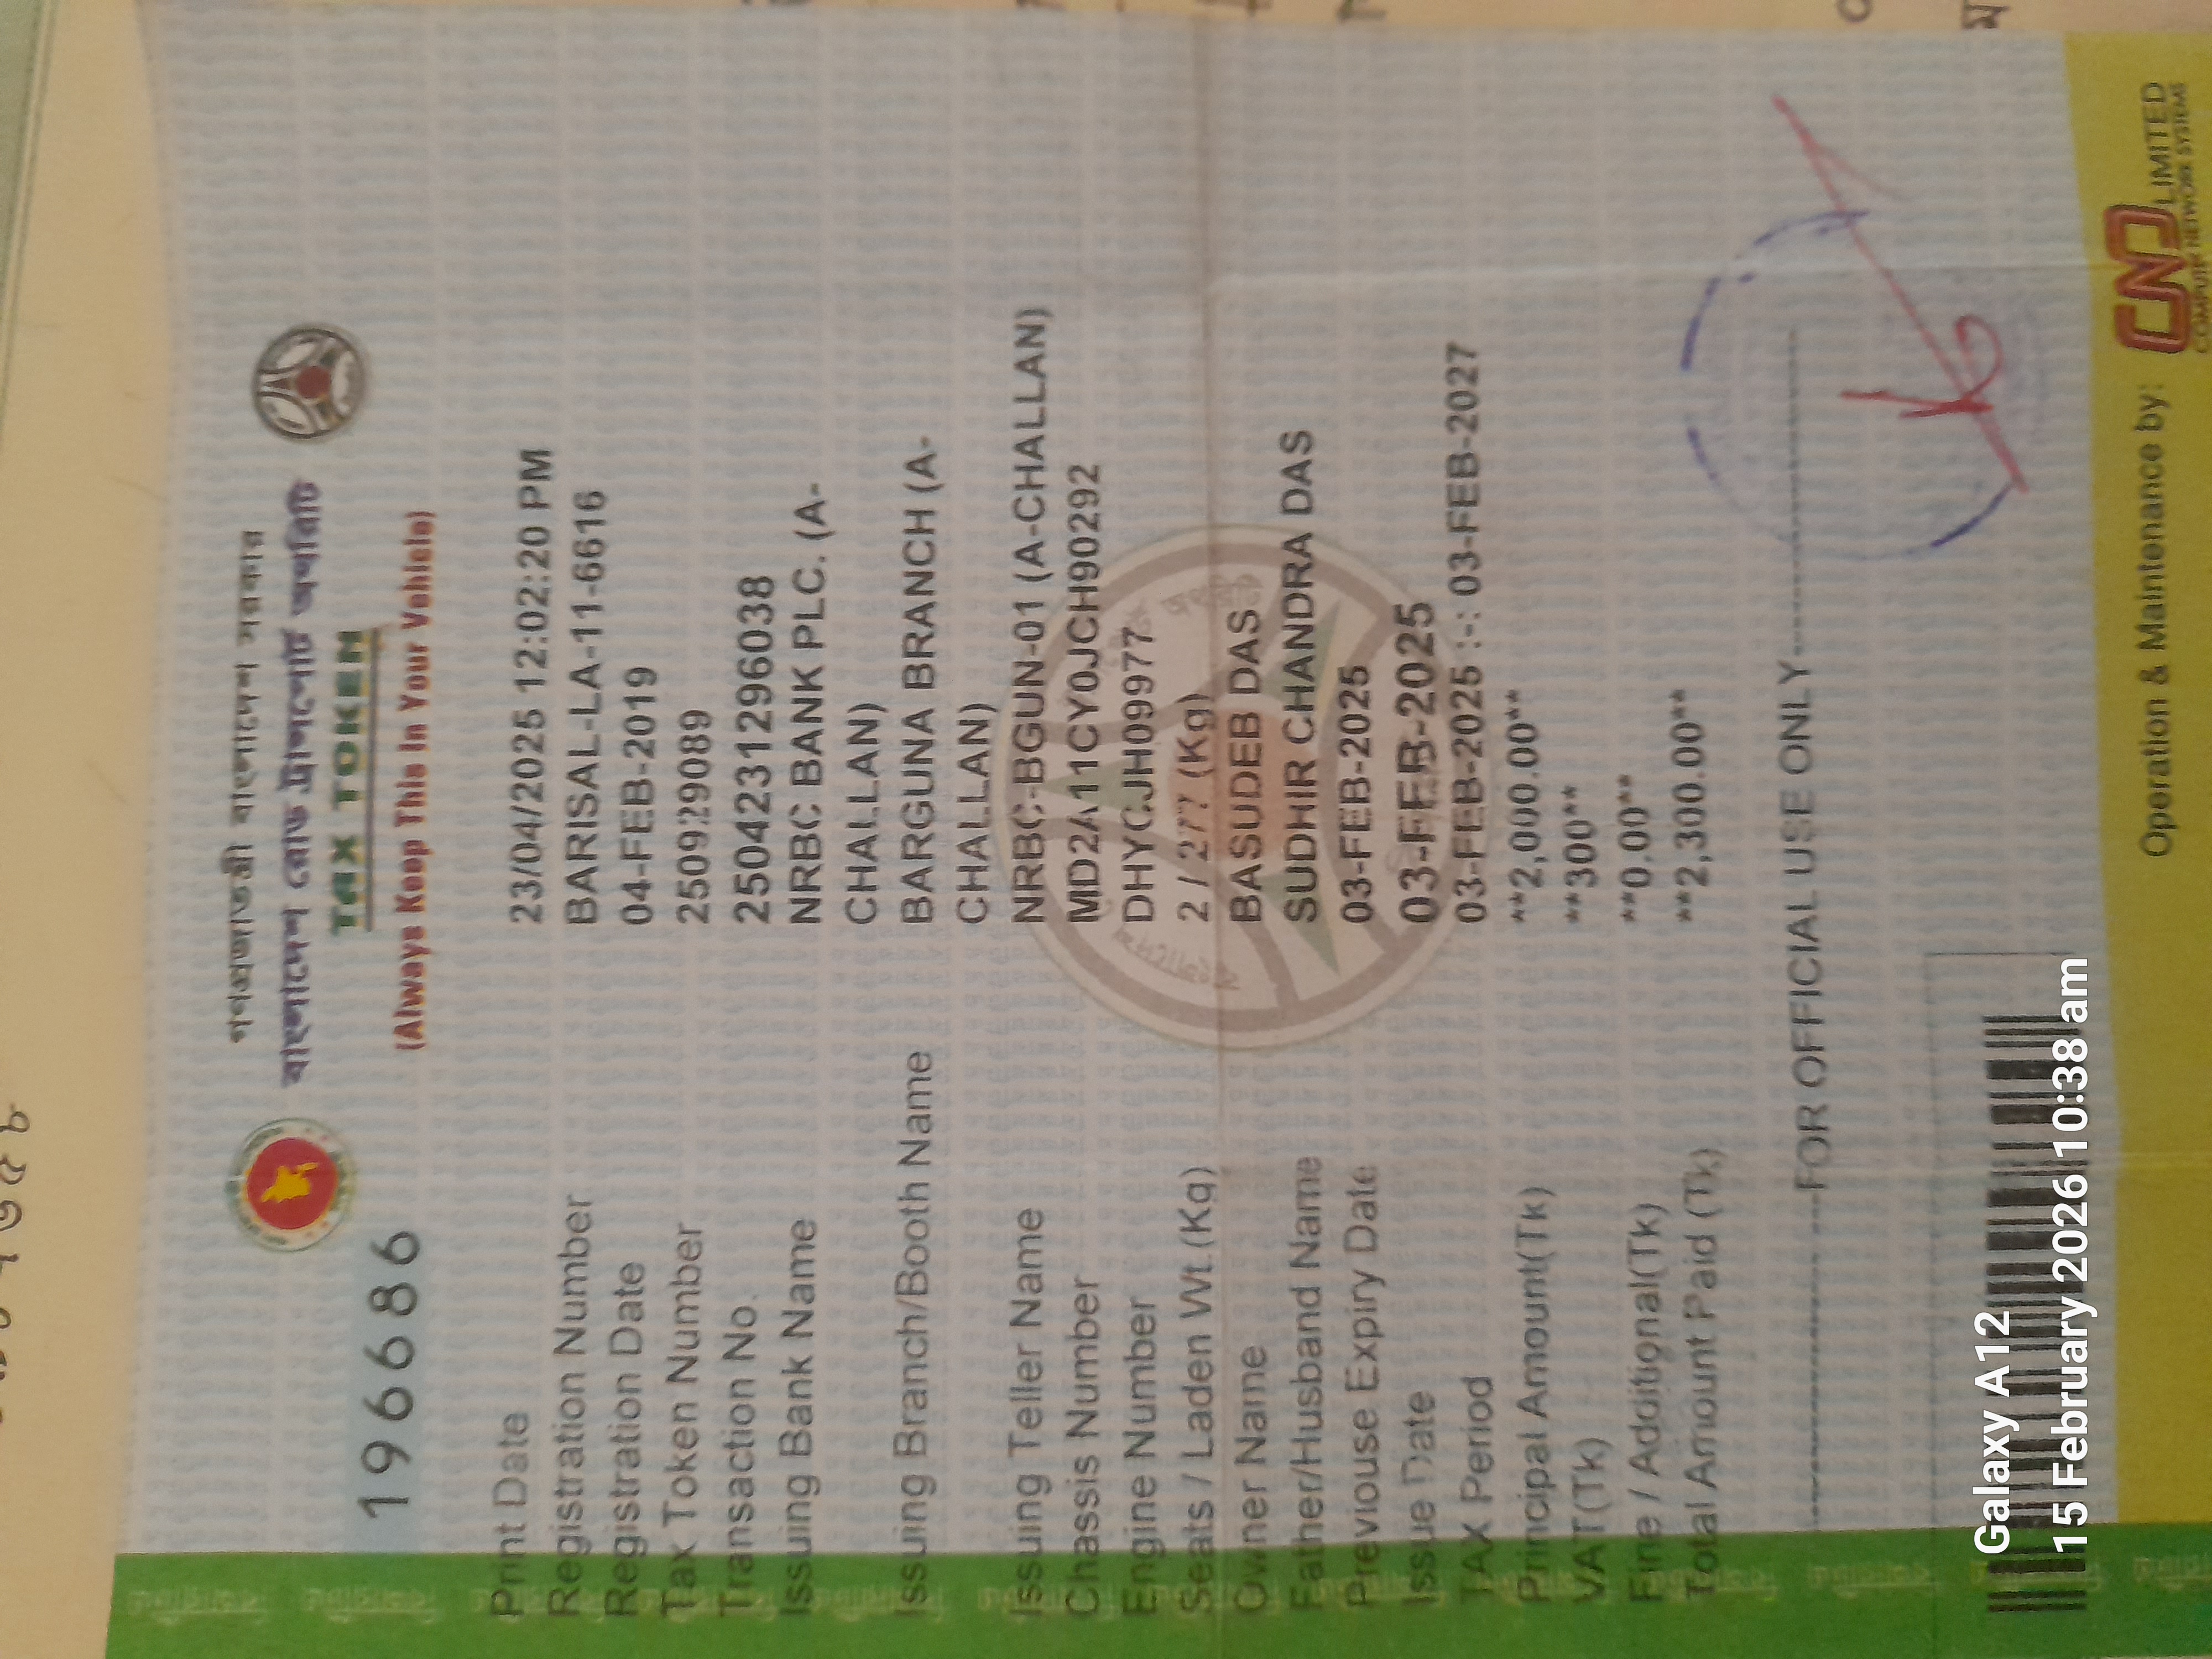 গণপ্রজাতন্ত্রী বাংলাদেশ সরকার
বাংলাদেশ রোড ট্রান্সপোর্ট অথরিটি
TAX TOKEN
(Always Keep This In Your Vehicle)
196686
Print Date 23/04/2025 12:02:20 PM
Registration Number BARISAL-LA-11-6616
Registration Date 04-FEB-2019
Tax Token Number 250929089
Transaction No. 2504231296038
Issuing Bank Name NRBC BANK PLC. (A-
CHALLAN)
Issuing Branch/Booth Name BARGUNA BRANCH (A-
CHALLAN)
Issuing Teller Name NRBC-BGUN-01 (A-CHALLAN)
Chassis Number MD2A11CY0JCH90292
Engine Number DHYCJH09977
Seats / Laden Wt.(Kg) 2 / 277 (Kg)
Owner Name BASUDEB DAS
Father/Husband Name SUDHIR CHANDRA DAS
Previouse Expiry Date 03-FEB-2025
Issue Date 03-FEB-2025
TAX Period 03-FEB-2025 :-: 03-FEB-2027
Principal Amount(Tk) **2,000.00**
VAT(Tk) **300**
Fine / Additional(Tk) **0.00**
Total Amount Paid (Tk) **2,300.00**
FOR OFFICIAL USE ONLY
Operation & Maintenance by:
CNS LIMITED
COMPUTER NETWORK SYSTEMS
Galaxy A12
15 February 2026 10:38 am